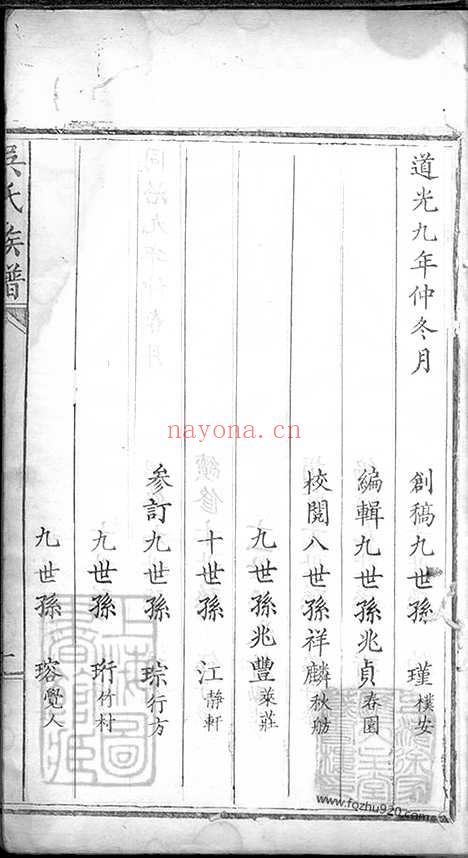 道光九年仲冬月
創稿九世孫 瑾樸安
編輯九世孫兆貞春園
校閱八世孫祥麟秋舫
九世孫兆豐萊莊
十世孫 江靜軒
參訂九世孫 琮行方
九世孫 珩竹村
九世孫 瑢覺人
吳氏族譜
nayona.cn
上海圖書館藏
www.fqzhu920.com